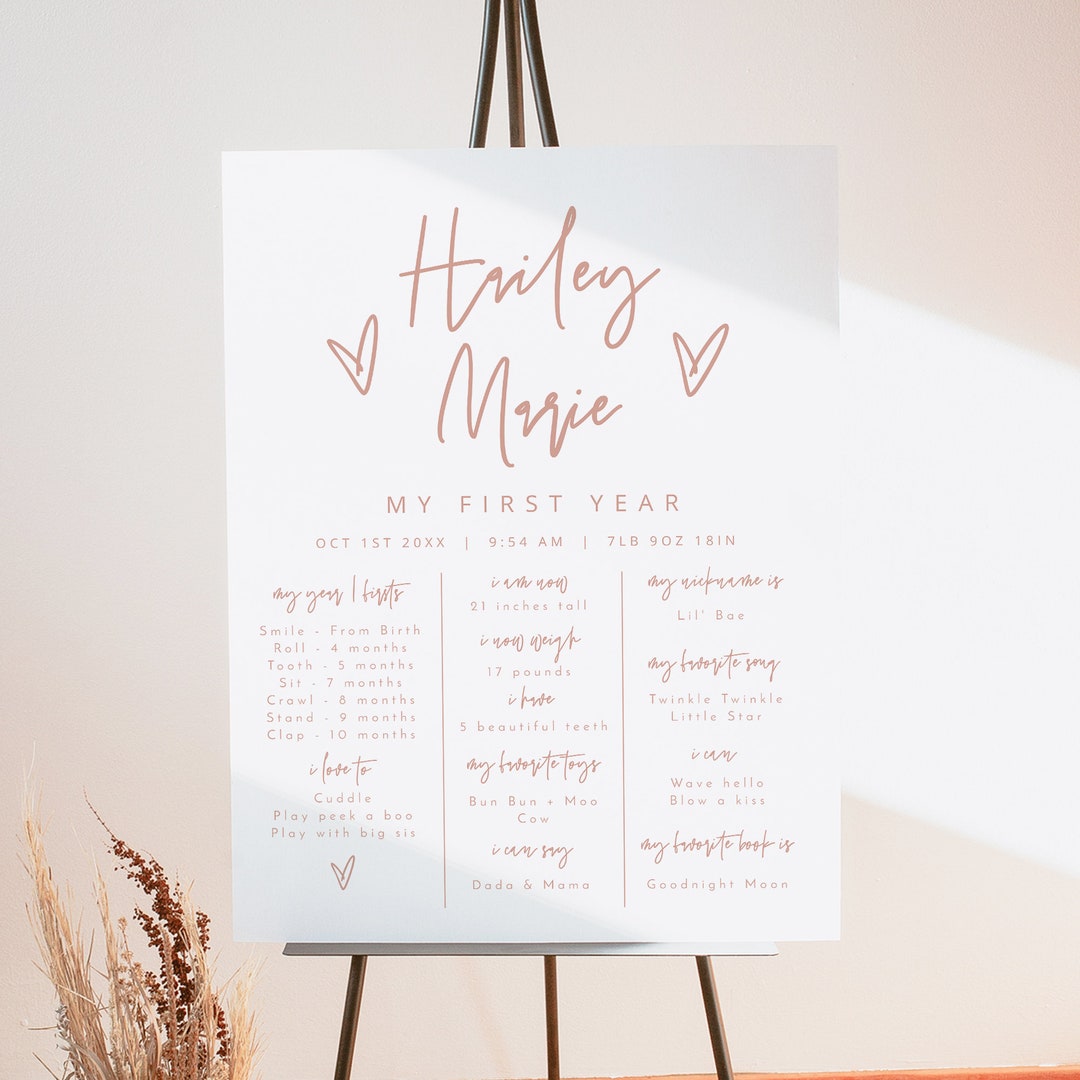 Hailey
Marie
MY FIRST YEAR
OCT 1ST 20XX | 9:54 AM | 7LB 9OZ 18IN
my year | firsts
Smile - From Birth
Roll - 4 months
Tooth - 5 months
Sit - 7 months
Crawl - 8 months
Stand - 9 months
Clap - 10 months
i love to
Cuddle
Play peek a boo
Play with big sis
i am now
21 inches tall
i now weigh
17 pounds
i have
5 beautiful teeth
my favorite toys
Bun Bun + Moo
Cow
i can say
Dada & Mama
my nickname is
Lil' Bae
my favorite song
Twinkle Twinkle
Little Star
i can
Wave hello
Blow a kiss
my favorite book is
Goodnight Moon